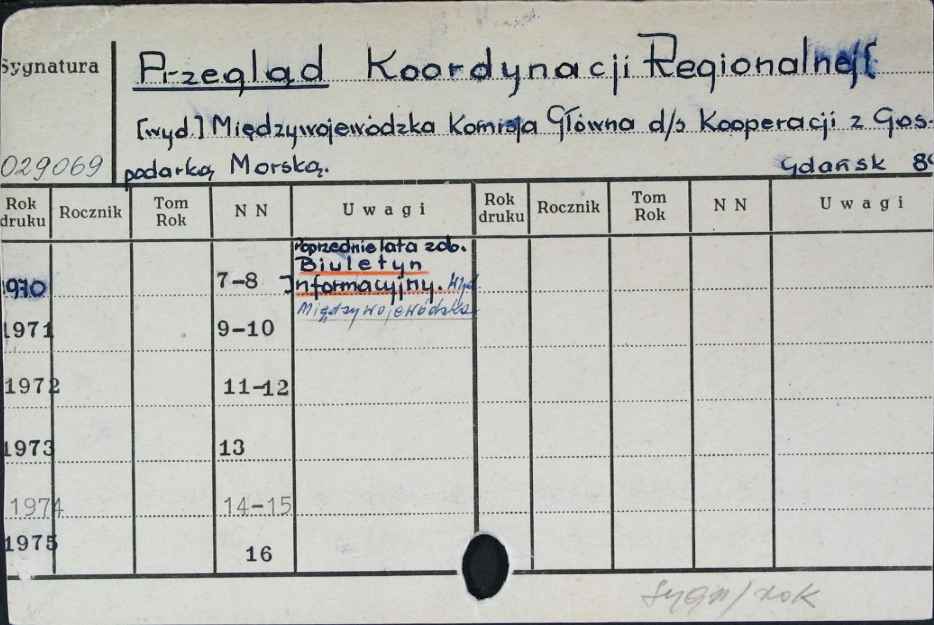 Sygnatura
Przegląd Koordynacji Regionalnej
[wyd.] Międzywojewódzka Komisja Główna d/s Kooperacji z Gos-
029069
podarką Morską. Gdańsk
Rok druku Rocznik Tom Rok N N Uwagi Rok druku Rocznik Tom Rok N N Uwagi
Poprzednie lata zob.
Biuletyn
1970 7-8 Informacyjny. Wyd.
Międzywojewódzka
1971 9-10
1972 11-12
1973 13
1974 14-15
1975 16
Sygn/rok